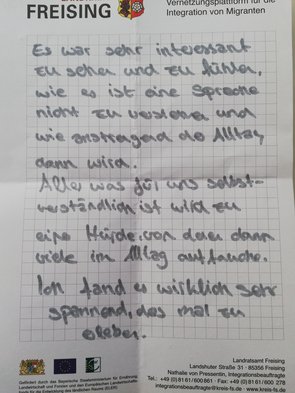 FREISING
Vernetzungsplattform für die
Integration von Migranten
Es war sehr interessant
zu sehen und zu fühlen,
wie es ist eine Sprache
nicht zu verstehen und
wie anstrengend de Alltag
dann wird.
Alles was für uns selbst-
verständlich ist wird zu
eine Hürde, von denen dann
viele im Alltag auftauche.
Ich fand es wirklich sehr
spannend, das mal zu
erleben.
Gefördert durch das Bayerische Staatsministerium für Ernährung,
Landwirtschaft und Forsten und den Europäischen Landwirtschafts-
fonds für die Entwicklung des ländlichen Raums (ELER)
Landratsamt Freising
Landshuter Straße 31 · 85356 Freising
Nathalie von Pressentin, Integrationsbeauftragte
Tel.: +49 (0) 81 61/600 861 · Fax: +49 (0) 81 61/600 278
integrationsbeauftragte@kreis-fs.de · www.kreis-fs.de